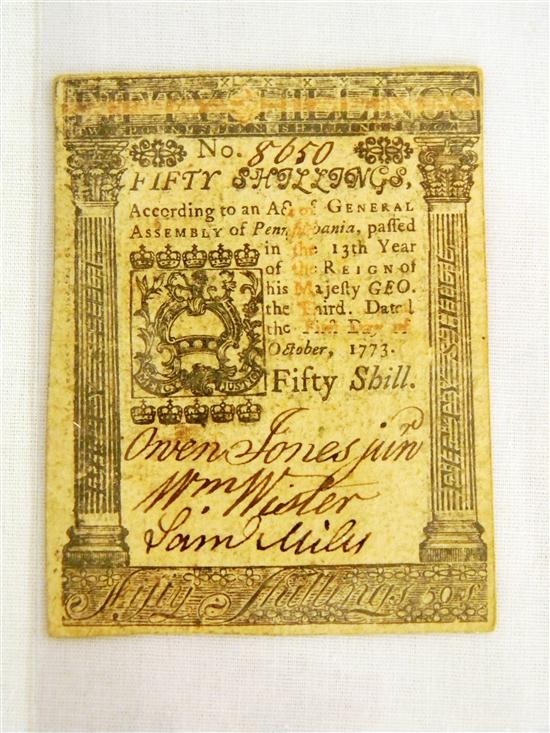 FIFTY SHILLINGS
No. 8650
FIFTY SHILLINGS,
According to an Act of GENERAL
ASSEMBLY of Pennsylvania, passed
in the 13th Year
of the REIGN of
his Majesty GEO.
the Third. Dated
the First Day of
October, 1773.
MERCY JUSTICE
Fifty Shill.
Owen Jones junr
Wm Wister
Saml Miles
Fifty Shillings 50s